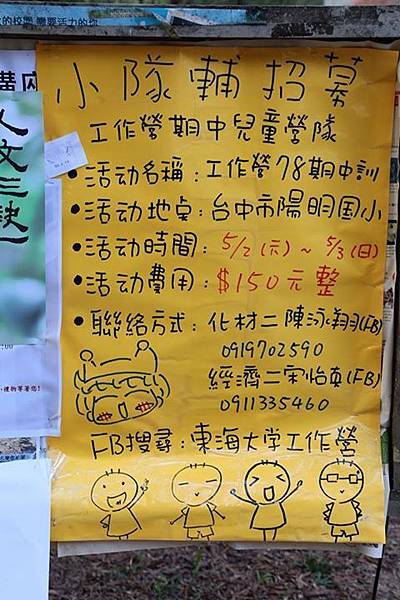 小隊輔招募
工作營期中兒童營隊
•活动名稱:工作營78期中訓
•活动地点:台中市陽明国小
•活动時間:5/2(六)~5/3(日)
•活动費用:$150元整
•聯絡方式:化材二陳泳翔(FB)
0919702590
經濟二宋怡英(FB)
0911335460
FB搜尋:東海大学工作營
人文三缺一